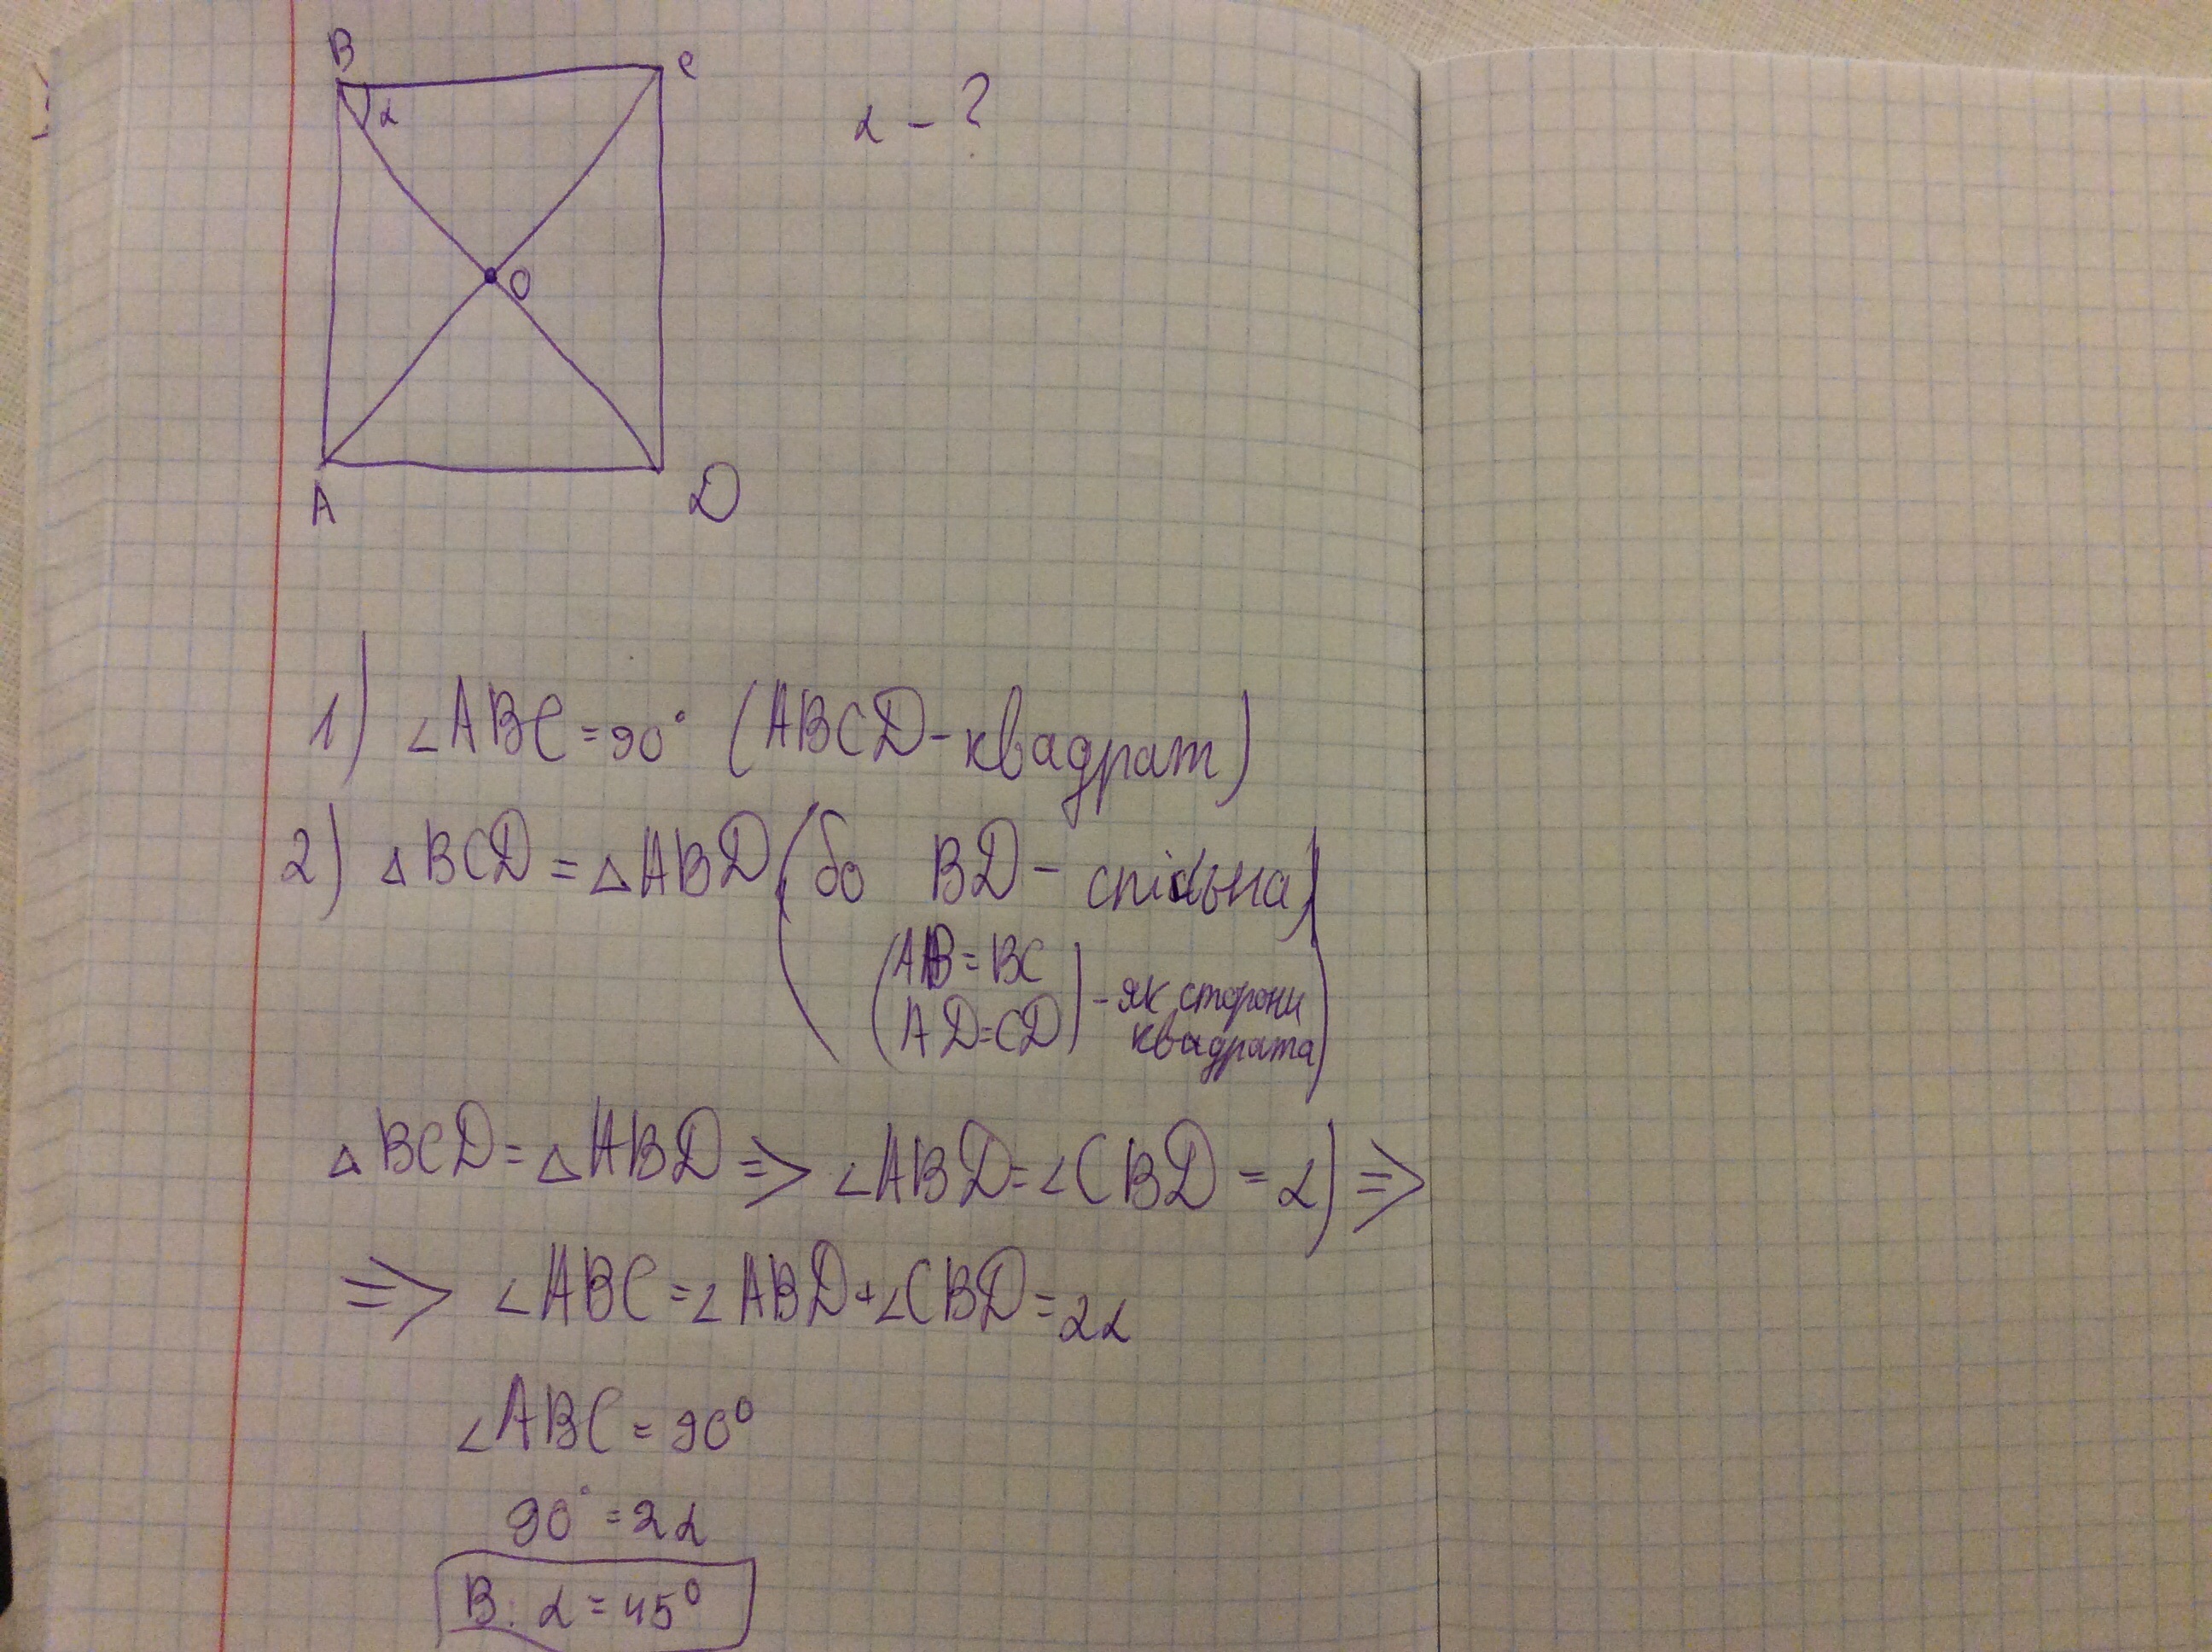 B
C
α
α - ?
O
A
D
1) ∠ABC = 90° (ABCD - квадрат)
2) △BCD = △ABD (бо BD - спільна,
(AB = BC
AD = CD) - як сторони
квадрата)
△BCD = △ABD => ∠ABD = ∠CBD = α) =>
=> ∠ABC = ∠ABD + ∠CBD = 2α
∠ABC = 90°
90° = 2α
В: α = 45°